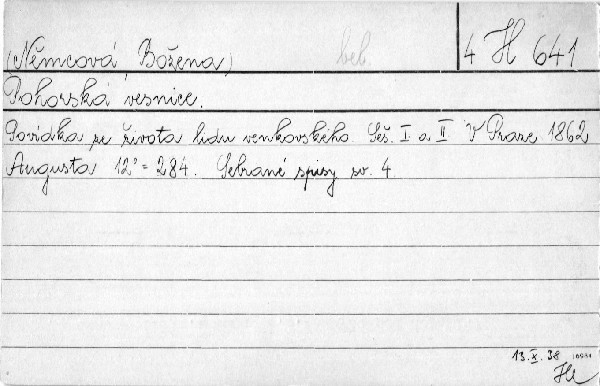 (Němcová Božena) beb. 4 H 641
Pohorská vesnice.
Povídka ze života lidu venkovského. Seš. I a II. V Praze 1862
Augusta 12° = 284. Sebrané spisy sv. 4.
13. X. 38